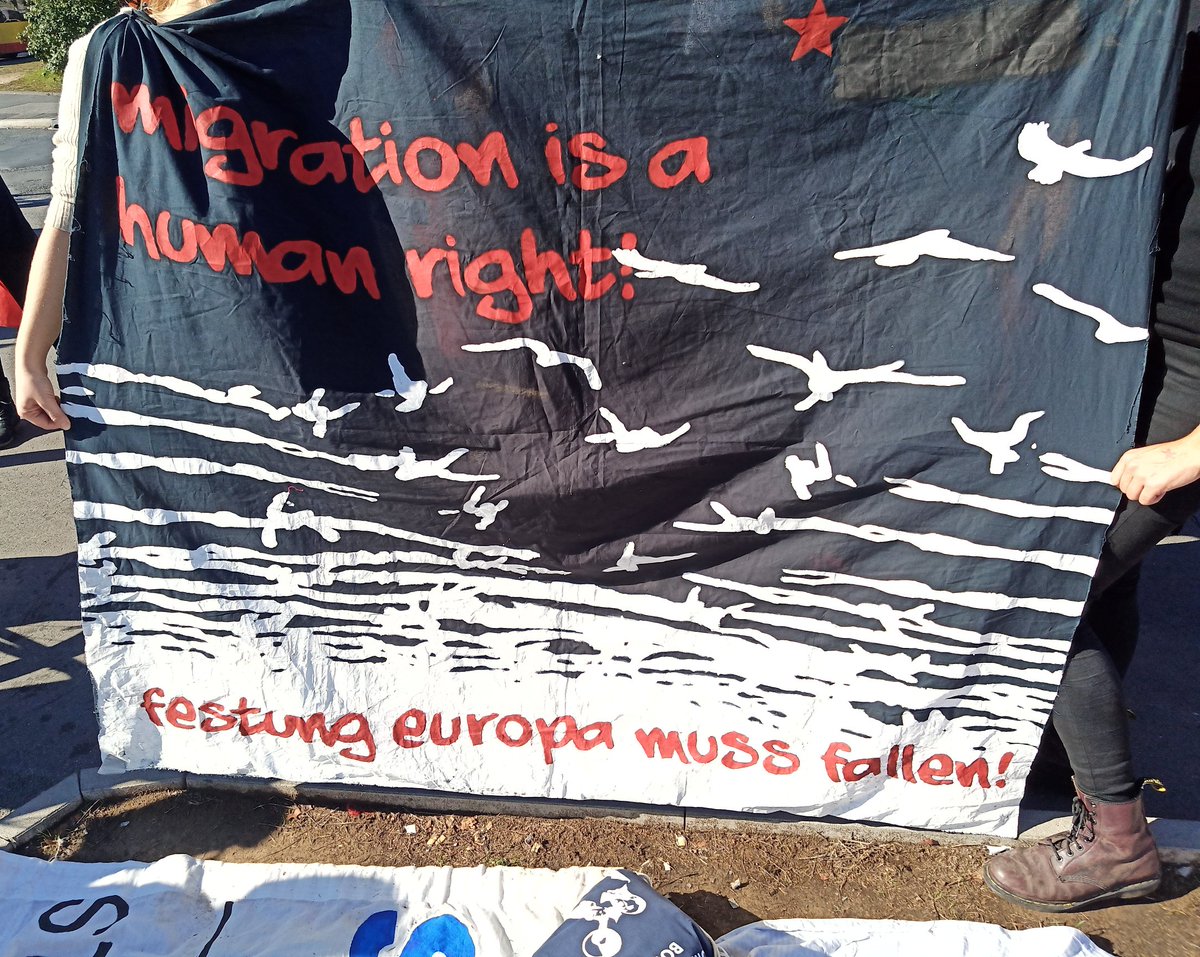 migration is a
human right!
festung europa muss fallen!
BO